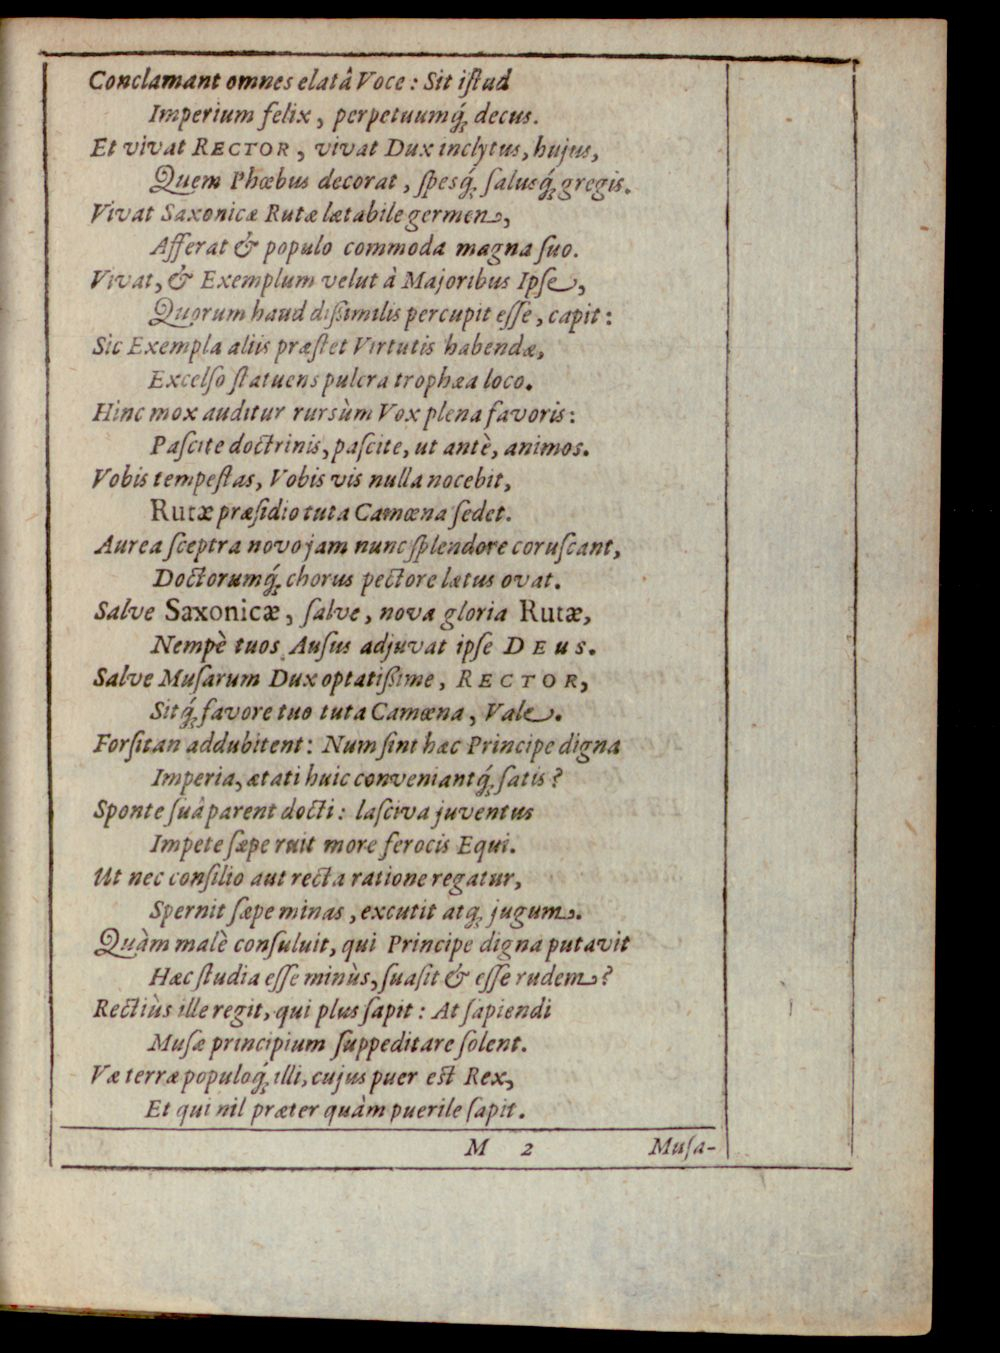 Conclamant omnes elatâ Voce: Sit iſtud
Imperium felix, perpetuumq́; decus.
Et vivat RECTOR, vivat Dux inclytus, hujus,
Quem Phœbus decorat, ſpesq́; ſalusq́; gregis.
Vivat Saxonicæ Rutæ lætabile germen,
Afferat & populo commoda magna ſuo.
Vivat, & Exemplum velut à Majoribus Ipſe,
Quorum haud diſſimilis percupit eſſe, capit:
Sic Exempla aliis præſtet Virtutis habendæ,
Excelſo ſtatuens pulcra trophæa loco.
Hinc mox auditur rursùm Vox plena favoris:
Paſcite doctrinis, paſcite, ut antè, animos.
Vobis tempeſtas, Vobis vis nulla nocebit,
Rutæ præſidio tuta Camœna ſedet.
Aurea ſceptra novo jam nunc ſplendore coruſcant,
Doctorumq́; chorus pectore lætus ovat.
Salve Saxonicæ, ſalve, nova gloria Rutæ,
Nempè tuos Auſus adjuvat ipſe DEUS.
Salve Muſarum Dux optatiſſime, RECTOR,
Sitq́; favore tuo tuta Camœna, Vale.
Forſitan addubitent: Num ſint hæc Principe digna
Imperia, ætati huic conveniantq́; ſatis?
Sponte ſuâ parent docti: laſciva juventus
Impete ſæpe ruit more ferocis Equi.
Ut nec conſilio aut recta ratione regatur,
Spernit ſæpe minas, excutit atq; jugum.
Quàm malè conſuluit, qui Principe digna putavit
Hæc ſtudia eſſe minùs, ſuaſit & eſſe rudem?
Rectiùs ille regit, qui plus ſapit: At ſapiendi
Muſæ principium ſuppeditare ſolent.
Væ terræ populoq́; illi, cujus puer est Rex,
Et qui nil præter quàm puerile ſapit.
M 2 Muſa-